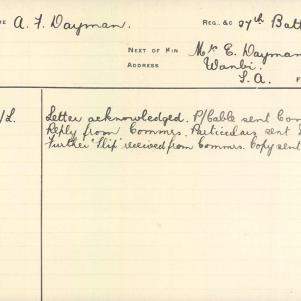 A. F. Dayman. Reg. &c 27th Batt
Next of Kin Mr E. Dayman
Address Wanbi.
S. A.
/L. Letter acknowledged. P/Cable sent Com
Reply from Commrs. Particulars sent
Further "slip" received from Commrs. Copy sent